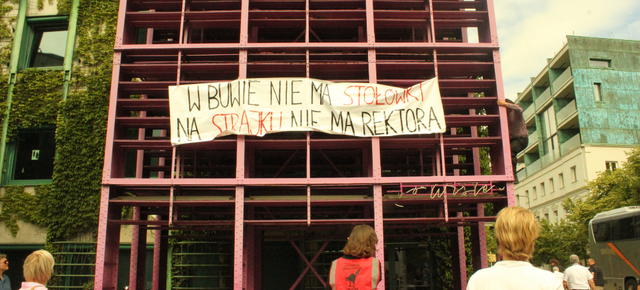 W BUWIE NIE MA STOŁÓWKI
NA STRAJKU NIE MA REKTORA